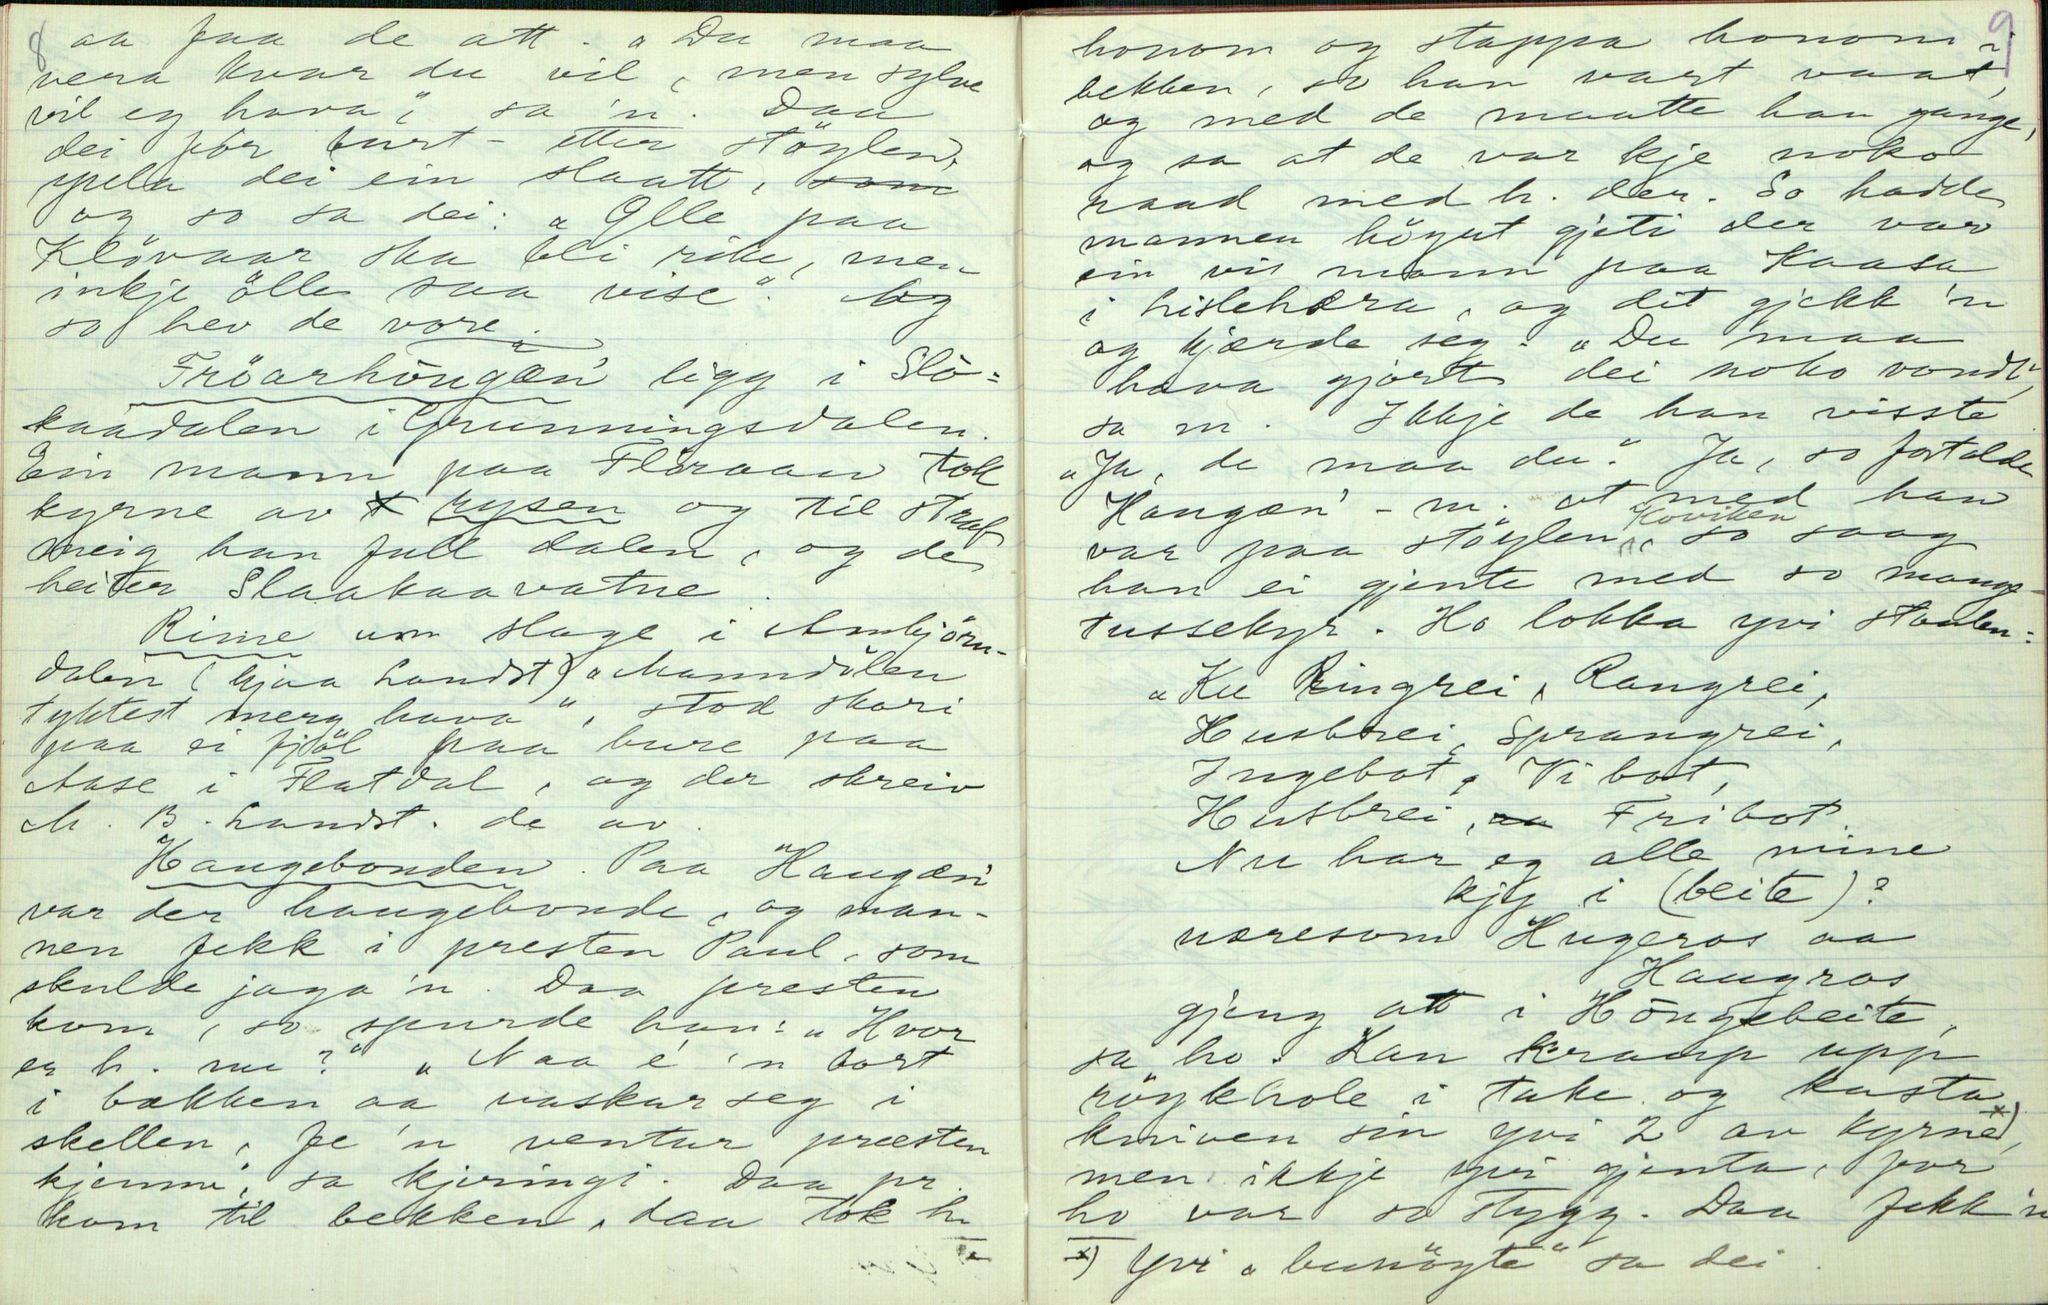 8
aa faa de att. „Du maa
vera kvar du vil, men sylve
vil eg hava", sa 'n. Daa
dei fór burt etter stöylen,
spela dei ein slaatt, som
og so sa dei: „Olle paa
Klövaar ska bli rike, men
inkje ölle saa vise". Og
so hev de vore.
Fröarhöugæn' ligg i Slö=
kaadalen i Grunningsdalen.
Ein mann paa Flaraan tok
kyrne av rysen og til straf
meig han full dalen, og de
heiter Slaakaavatne.
Rime um slage i Ambjörn-
dalen (hjaa Landst) „Manndölen
tyktest merg hava", stod skori
paa ei fjöl paa bure paa
Aase i Flatdal, og der skreiv
M. B. Landst. de av.
Haugebonden. Paa Haugæn'
var der haugebonde, og man-
nen fekk i presten Paul, som
skulde jaga 'n. Daa presten
kom, so spurde han: „Hvor
er h. nu?" „Naa é 'n bort
i bækken aa vaskar seg i
skellen, fe 'n ventur præsten
kjemi", sa kjeringi. Daa pr.
kom til bekken, daa tok h.
9
honom og stappa honom i
bekken, so han vart vaat,
og med de maatte han gange,
og sa at de var kje noko
raad med h. der. So hadde
mannen höyrt gjeti der var
ein vis mann paa Kaasa
i Lisleherad, og dit gjekk 'n
og kjærde seg. „Du maa
hava gjort dei noko vondt",
sa m. Ikkje de han visste
„Ja, de maa du". Ja, so fortalde
Haugæn'-m. at med han
var paa stöylen Koviken, so saag
han ei gjente med so mange
tussekyr. Ho lokka yvi staulen:
„Ku Ringrei, Rangrei,
Husbrei, Sprangrei,
Ingebot, Vibot,
Husbrei, aa Fribot.
Nu har eg alle mine
kjy i (beite)?
næresom Hugeros aa
Haugros
gjeng att i Höugebeite,
sa ho. Han kramp upp
röykhole i take og kasta
kniven sin yvi 2 av kyrne x),
men ikkje yvi gjenta, for
ho var so stygg. Daa fekk 'n
x) Yvi „bunöyte" sa dei.